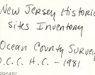 New Jersey Historic
Sites Inventory
Ocean County Survey
O.C.C.H.C. - 1981